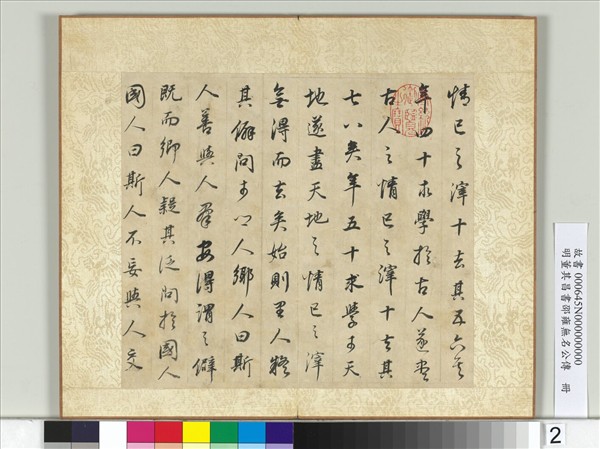 情已之滓十去其五六矣
年四十求學於古人遂盡
古人之情已之滓十去其
七八矣年五十求學于天
地遂盡天地之情已之滓
無得而去矣始則里人疑
其僻問于鄉人鄉人曰斯
人善與人羣安得謂之僻
既而鄉人疑其泛問於國人
國人曰斯人不妄與人交
故書000645N000000000
明董其昌書邵雍無名公傳 冊
2